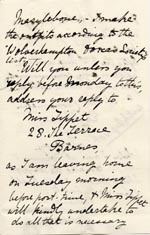 Marylebone, - I make
the outfits according to the
Wolverhampton
Will you unless you
reply before Monday to this,
address your reply to
Miss Tippet
28. The Terrace
Barnes
as I am leaving home
on Tuesday morning
before post time, & Miss Tippet
will kindly undertake to
do all that is necessary